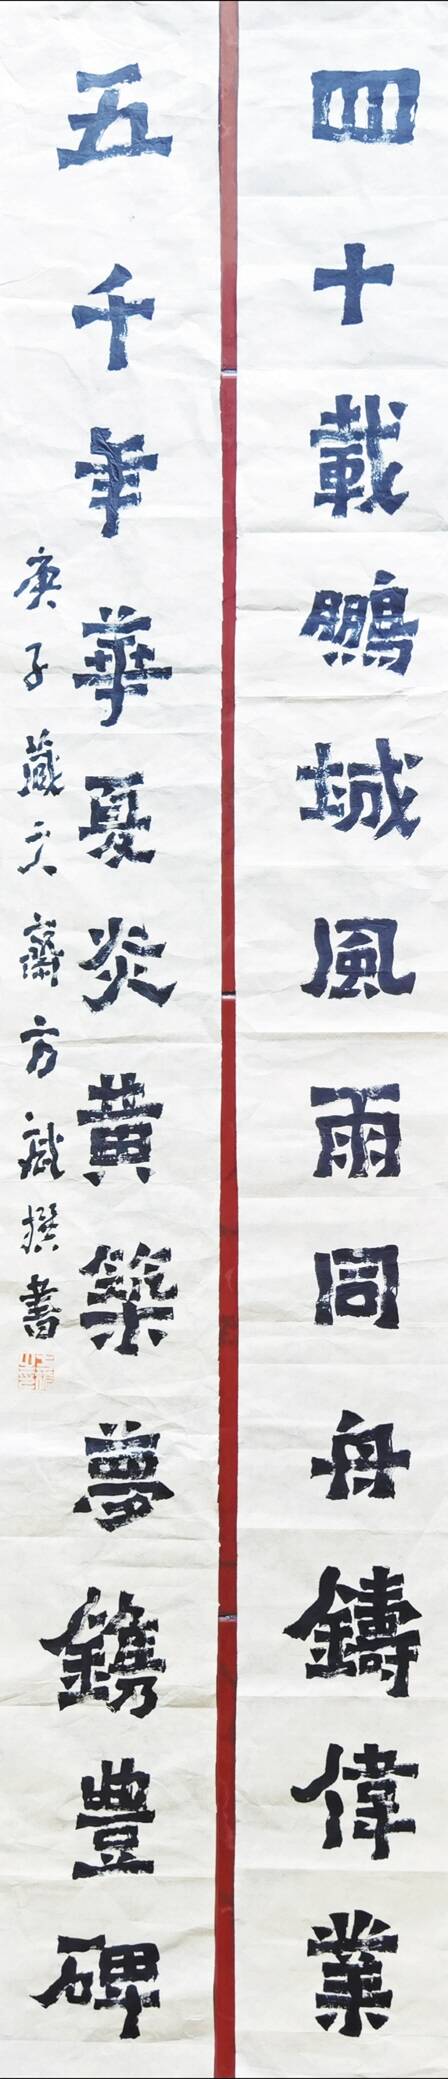 四十載鵬城風雨同舟鑄偉業
五千年華夏炎黃築夢鐫豐碑
庚子藏之齋方斌撰書